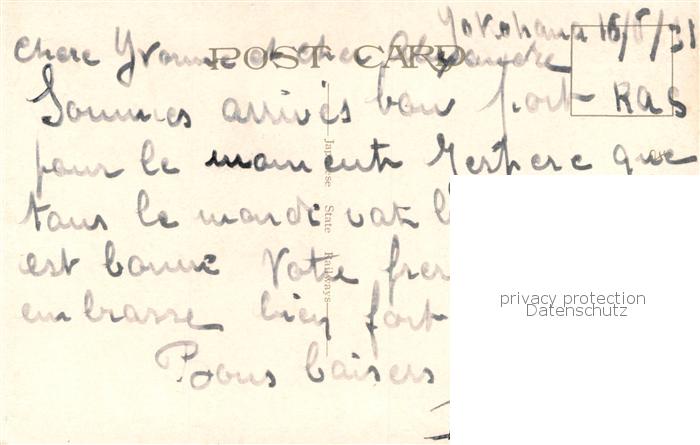 Yokohama 16/5/31
Chere Yvonne et cher Alexandre
POST CARD
Sommes arrivés bon port RAS
pour le moment J'espere que
tous le monde vat b
est bonne Votre frer
embrasse bien fort
Bons baisers
Japanese State Railways
privacy protection
Datenschutz